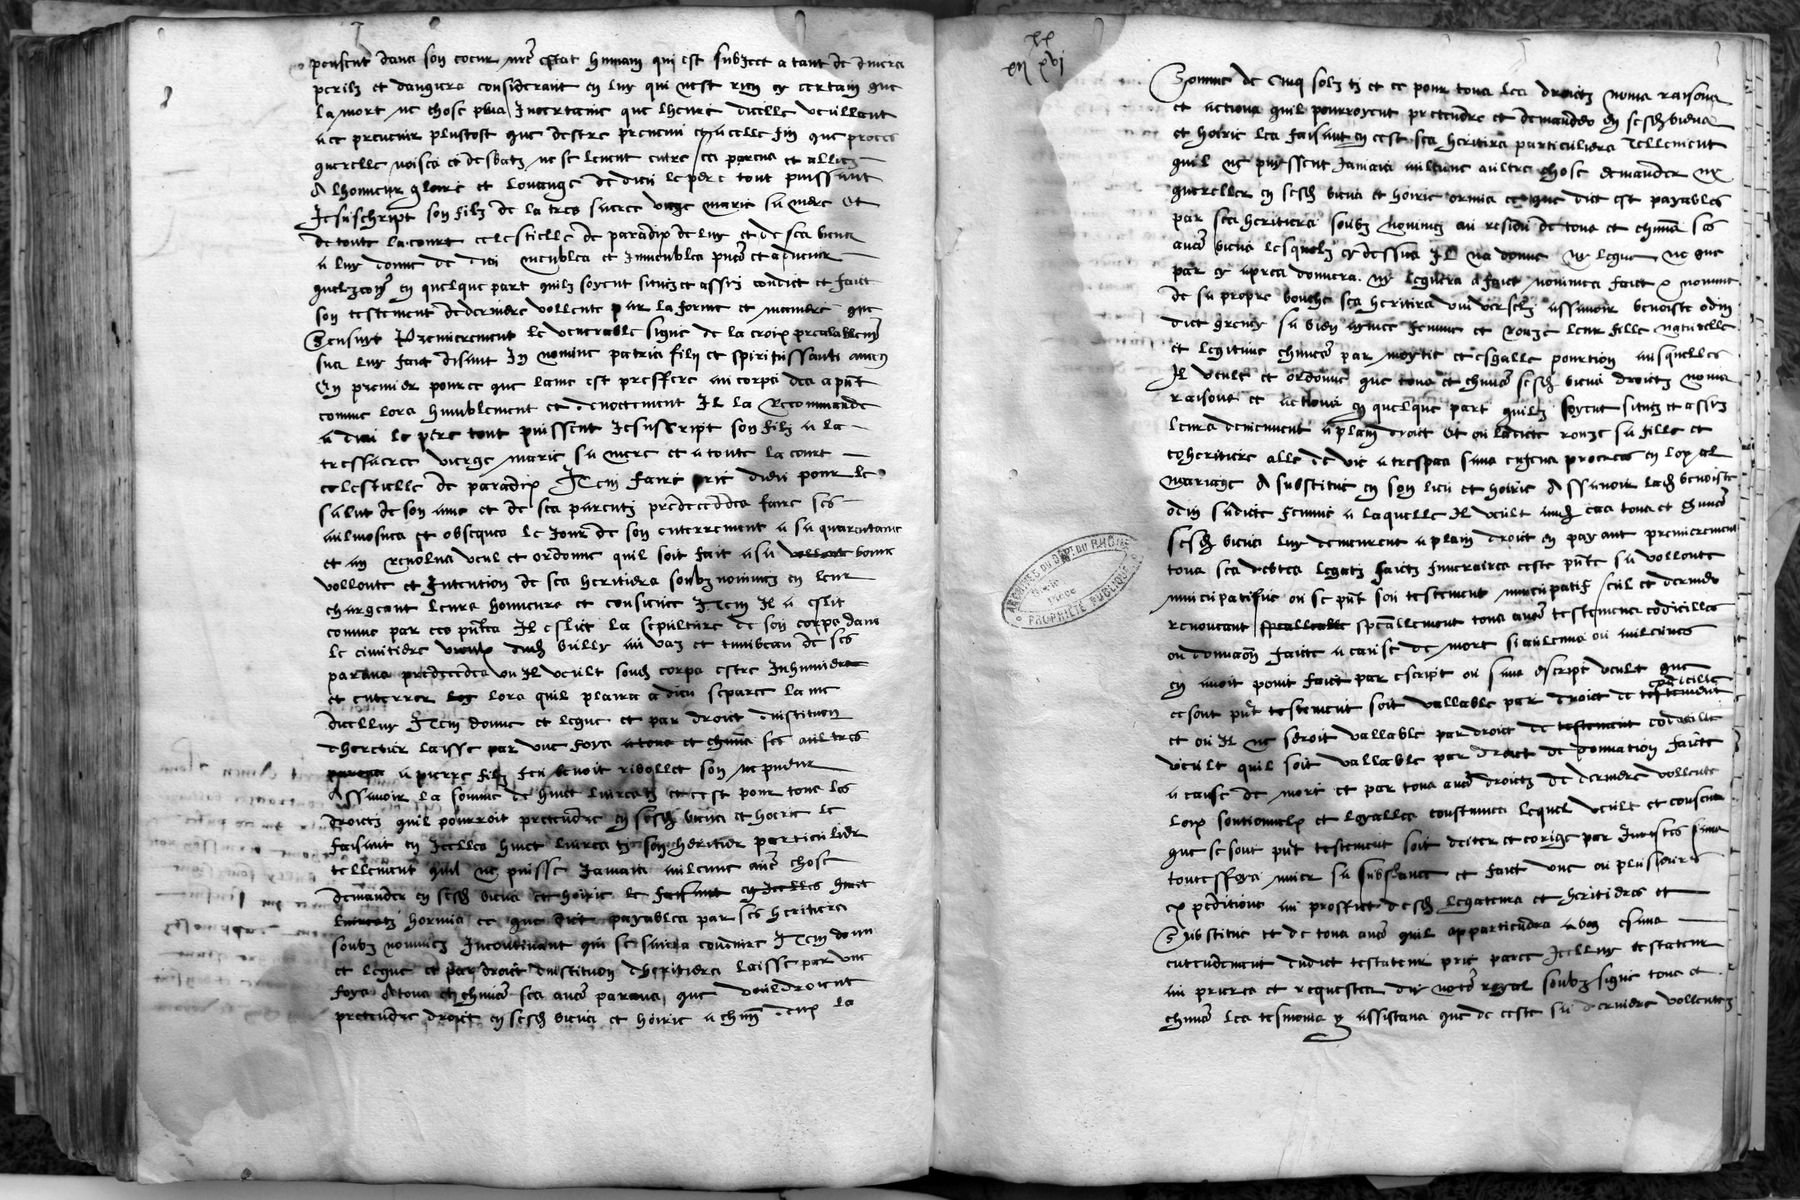 pensent dans son coeur nre estat humain qui est subiect a tant de divers
perilz et dangiers considerant en luy qui nest rien cy certain que
la mort ne chose plus Incertaine que lheure dicelle veullant
a ce prevenir plustost que destre prevenu en icelle fin que proces
querelle noises et desbatz ne se levent entre ses parens et alliez
A lhonneur gloire et louange de dieu le pere tout puissant
Jesuschript son filz de la tres sacree vierge marie sa mere et
de toute la court celestielle de paradix de luy et de ses biens
a luy donne de dieu meubles et Immeubles pns et advenir
quelzcons en quelque part quilz soyent situez et assis condict et faict
son testement de derniere vollente par la forme et maniere que
Sensuyt Premierement le venerable signe de la croix prealablemt
sus luy faict disant In nomine patris filii et spiritussanti amen
En premier pource que lame est preffere au corps des a pnt
comme lors humblement et devottement Il la Recommande
a dieu le pere tout puissent Jesuscript son filz a la
tressacree vierge marie sa mere et a toute la court
celestielle de paradix Item faire prie dieu pour le
salut de son ame et de ses parentz predecedes faire ses
aulmosnes et obseques le Jour de son enterrement a sa quarentaine
et au Revolus veul et ordonne quil soit fait a sa vollonte bonne
vollonte et Intention de ses heritiers soubz nommez en leur
chargeant leurs honneurs et consience Item Il a eslit
comme par ces pntes Il eslict la sepulture de son corps dans
le cimitiere vieulx dudz bully au vaz et tumbeau de ses
parens predecedes ou Il veult soudz corps estre Inhumer
et enterrer lors quil plaira a dieu separer lame
dicelluy Item donne et legue et par droict dinstitution
dheretier laisse par une foys a tous et chuns ses aultres
parens a pierre filz feu benoit ribollet son nepveur
Assavoir la somme de huict livres tz et ce est pour tous les
droictz quil pourroit pretendre en sesdz biens et hoirie le
faisant en Icelles huict livres tz son heritier particulier
tellement quil ne puisse Jamais aulcune aure chose
demander en sesdz biens et hoirie le faisant en Icelles huict
livres tz hormis ce que dict payables par ses heritiers
soubz nommez Incontinant
et legue et par droict dinstitution dheritiers laisse par une
foys A tous et chuns ses aures parans que vouldroient
pretendre droict en sesdz biens et hoirie a chun deux la
xx
xvi
Somme de cinq solz tz et ce pour tous les droictz noms raisons
et actions quil pourroyent pretendre et demander en sesdz biens
et hoirie les faisant en cest ses heritiers particuliers Tellement
quil ne puyssent Jamais aulcune aultre chose demander ne
quereller en sesdz biens et hoirie ormis ce que dict est payables
par ses heritiers soubz nommez au residu de tous et chuns ses
aures biens lesquelz cy dessus Il na donne ne legue ne que
par cy apres donnera ne leguera a faict nommes faict et nomme
de sa propre bouche ses heritiers universelz assavoir benoiste odin
dict greney sa bien aymee femme et Rouze leur fille naturelle
et legitime chune par moytie et esgalle pourtion ausquelles
Il veult et ordonne que tous et chuns sesdz biens droictz noms
raisons et actions en quelque part quilz soyent situez et assis
leurs deviennent a plain droict Et ou ladicte rouze sa fille et
coheritiere alle de vie a trespas sans enfens procrees en loyal
mariage A substitue en son lieu et hoirie Assavoir ladz benoiste
odin sadicte femme a laquelle Il veult tous et chuns
sesdz biens luy demeurent a plain droict en payant premierement
tous ses debtes legatz fraictz funeraires ceste pnte sa vollonte
nuncupatifve ou se pnt son testement nuncupatif seul et dernier
revoucant speallement tous aures testemens codicilles
ou donnaons faicte a cause de mort si aulcuns ou aulcunes
en avoit point faict par escript ou sans escript veult que
ce sont pnt testement soit vallable par droict de testement codicille
et ou Il ne seroit vallable par droict de testement codicille
veult quil soit vallable par droict de donnation faicte
a cause de mort et par tous aures droictz de derniere vollente
loix et loyalles coustumes lequel veult et consent
que se sont pnt testement soit dicter et corige par Juristes sans
touteffoys muer sa substance et faict une ou plusieurs
expeditions au proffict desdz legateurs et heritieres et
Substitue et de tous aures quil appartiendra a bon esans
entendement dudict testateur prie parce Icelluy testateur
au prieres et requestes du notre royal soubz signe tous et
chuns les tesmoins y assistans que de ceste sa derniere vollentez
ARCHIVES DU DÉPt DU RHÔNE
PROPRIÉTÉ PUBLIQUE